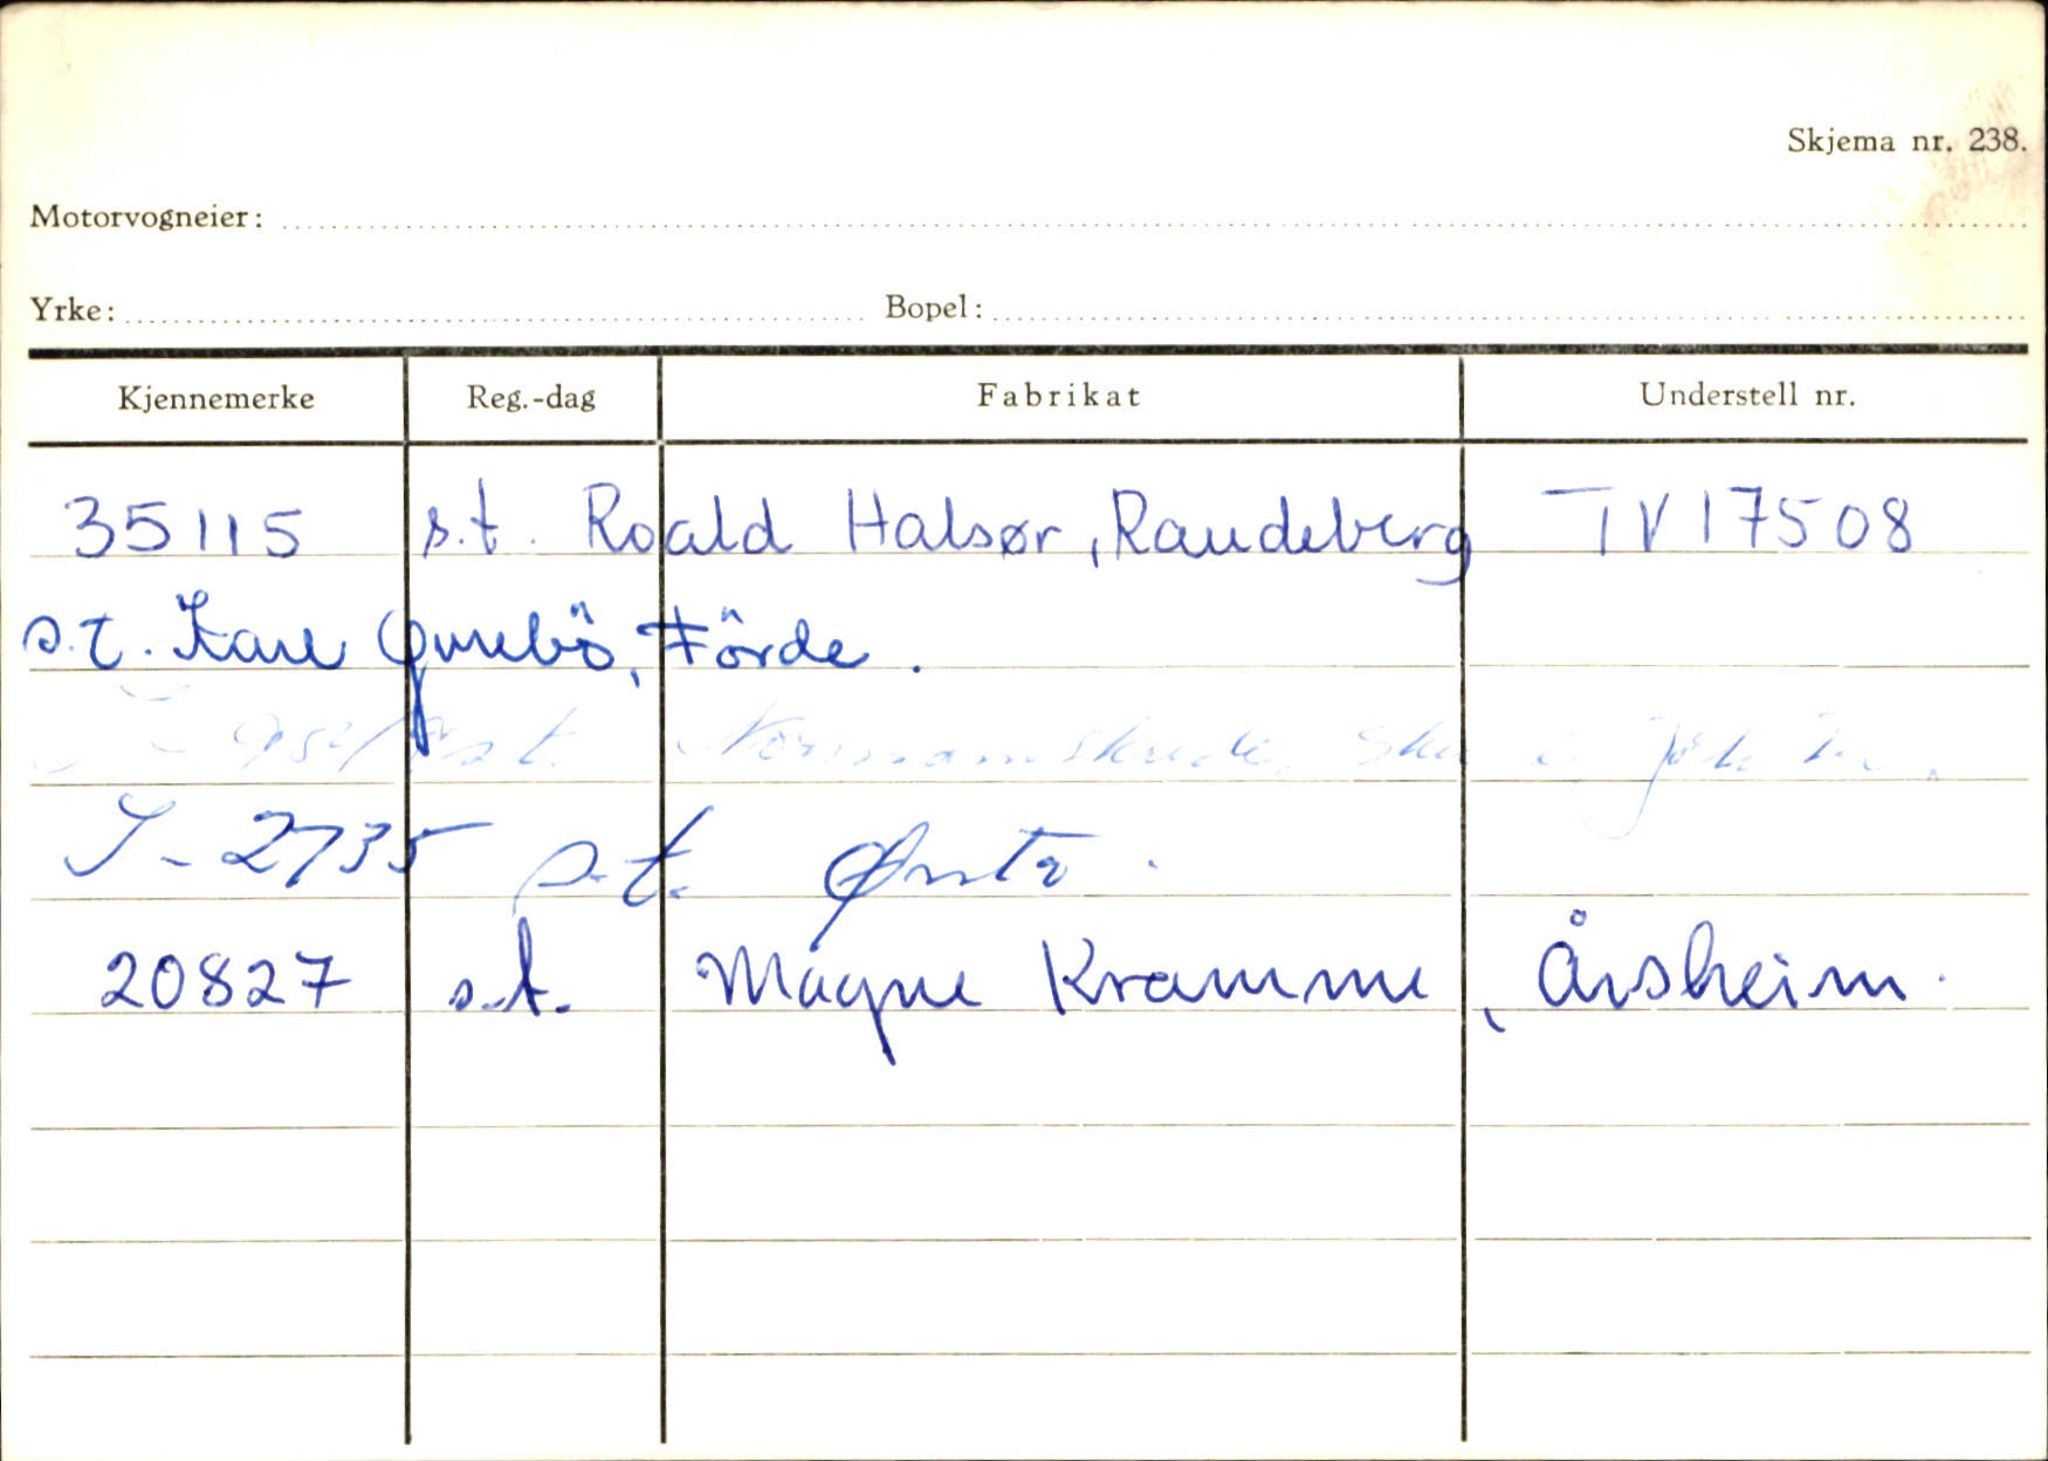 Skjema nr. 238.
Motorvogneier:
Yrke: Bopel:
Kjennemerke Reg.-dag Fabrikat Understell nr.
35115 s.t. Roald Halsør, Raudeberg TV17508
s.t. Kare Førde.
s.t.
S-2735 s.t. Ørsta.
20827 s.t. Magne Kramme, Årsheim.